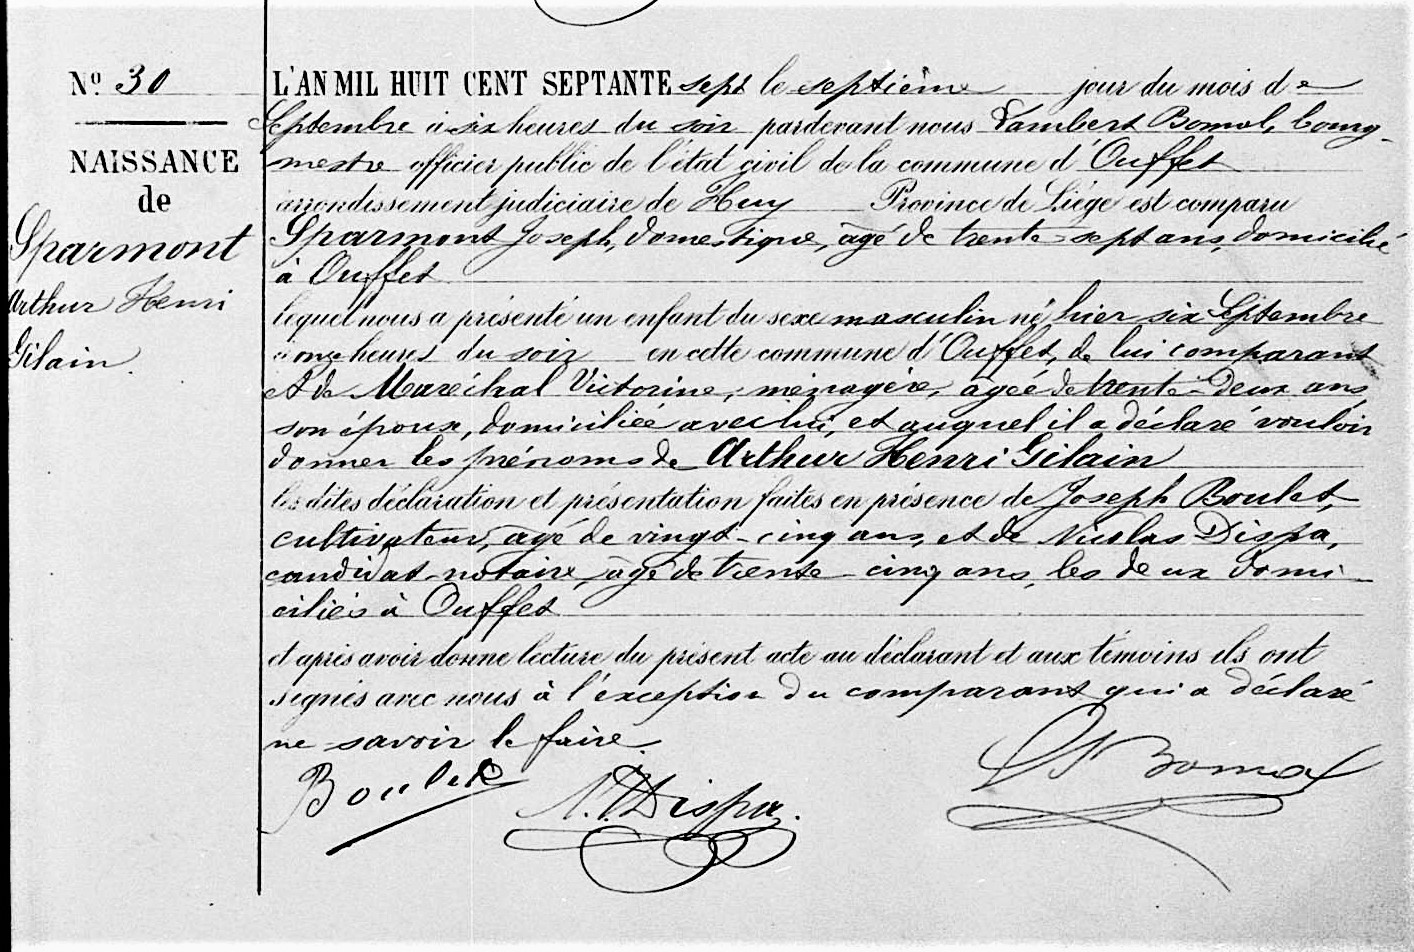 Nº 30
NAISSANCE
de
Sparmont
Arthur Henri
Gilain.
L'AN MIL HUIT CENT SEPTANTE sept le septième jour du mois de
Septembre à six heures du soir pardevant nous Lambert Bomal, bourg-
mestre officier public de l'état civil de la commune d'Ouffet
arrondissement judiciaire de Huy Province de Liége est comparu
Sparmont Joseph, domestique, âgé de trente-sept ans, domicilié
à Ouffet
lequel nous a présenté un enfant du sexe masculin né hier six Septembre
à onze heures du soir en cette commune d'Ouffet, de lui comparant
et de Maréchal Victorine, ménagère, âgée de trente-deux ans
son épouse, domiciliée avec lui, et auquel il a déclaré vouloir
donner les prénoms de Arthur Henri Gilain
les dites déclaration et présentation faites en présence de Joseph Boulet,
cultivateur, âgé de vingt-cinq ans, et de Nicolas Dispa,
candidat-notaire, âgé de trente-cinq ans, les deux domi-
ciliés à Ouffet
et après avoir donné lecture du présent acte au déclarant et aux témoins ils ont
signés avec nous à l'exception du comparant qui a déclaré
ne savoir le faire.
Boulet
N. Dispa.
Bomal